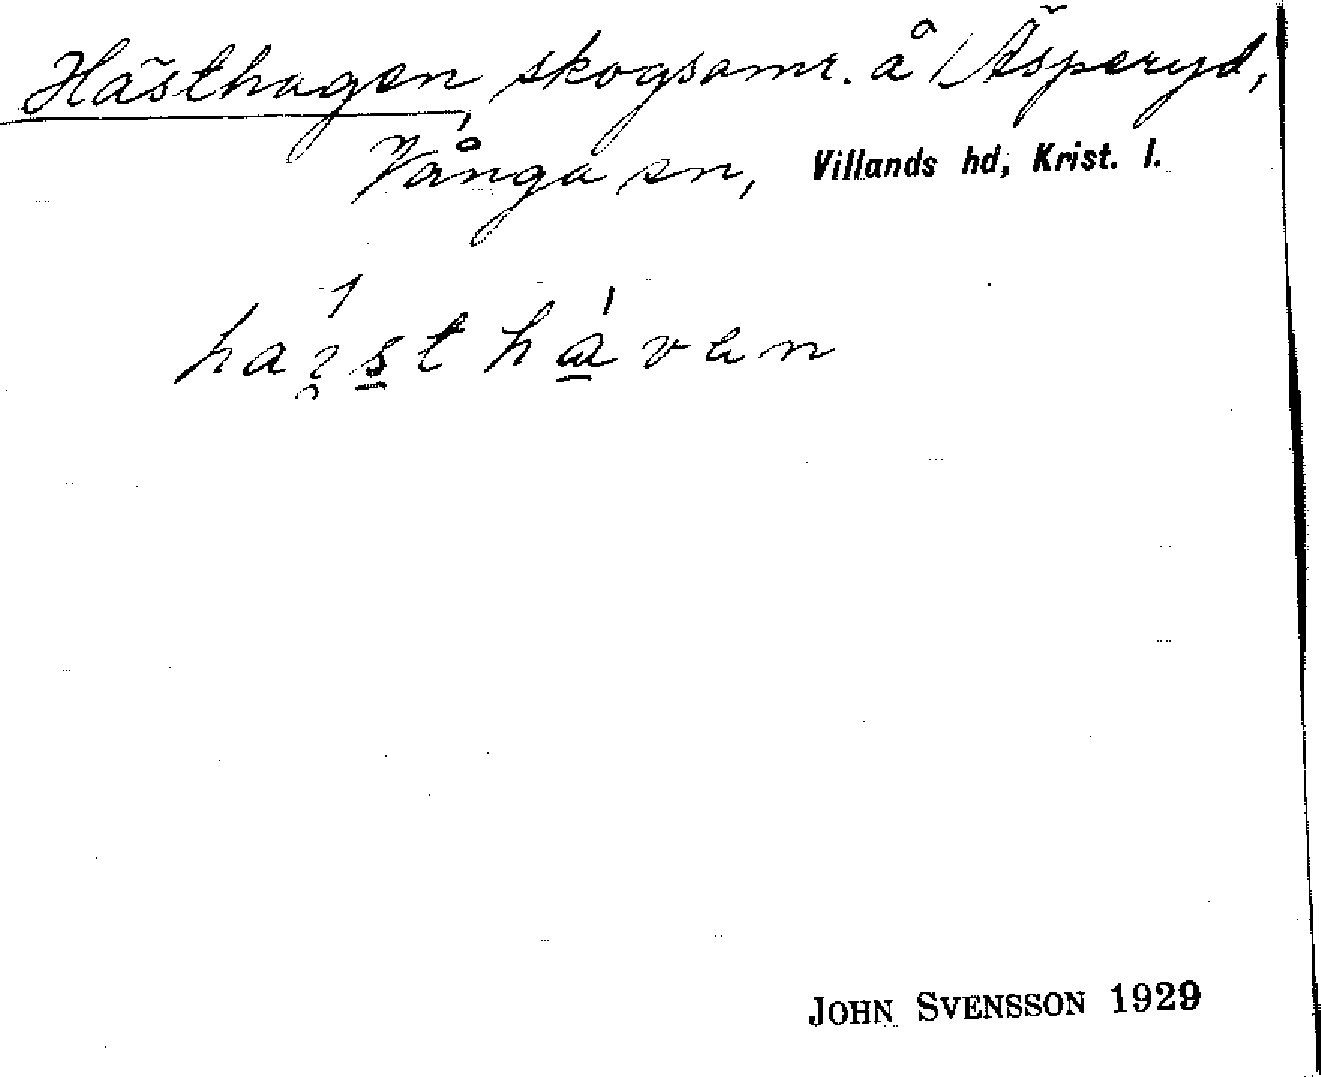 Hästhagen, skogsomr. å Äsperyd,
Vånga sn, Villands hd, Krist. l.
JOHN SVENSSON 1929